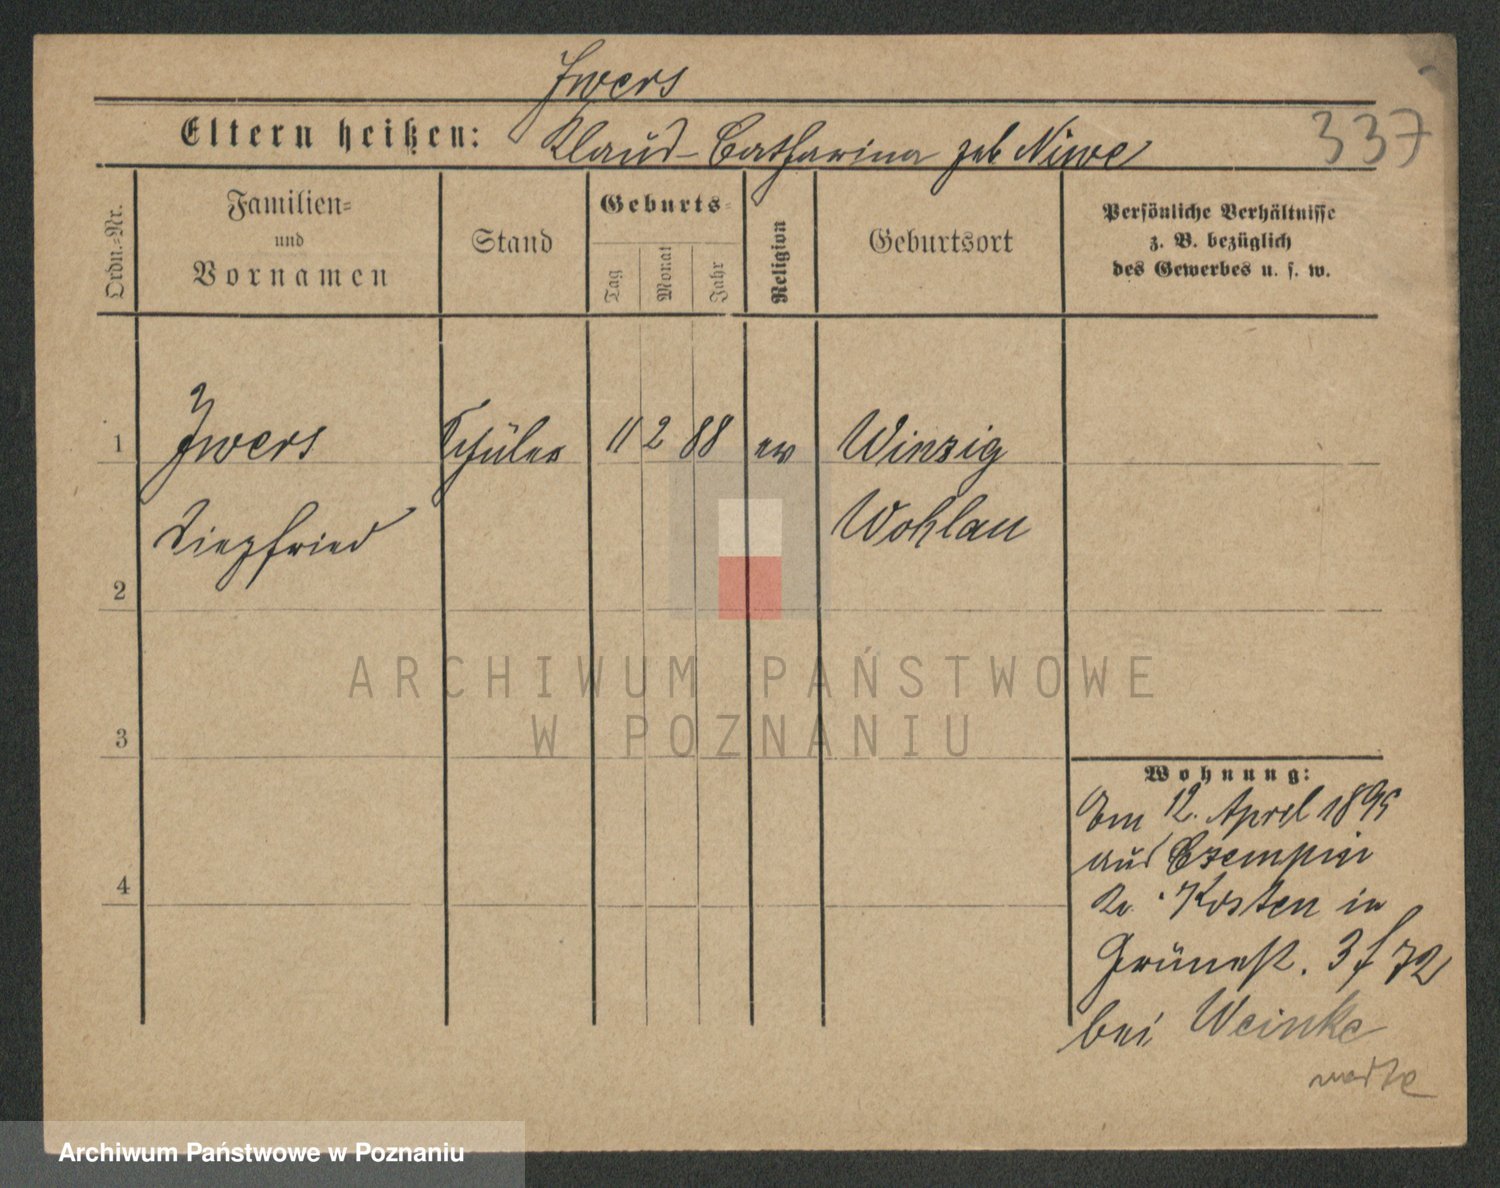 Iwers
Eltern heißen: Klaus - Catharina geb Niwe
337
Ordn.=Nr.
Familien=
und
Vornamen
Stand
Geburts=
Tag
Monat
Jahr
Religion
Geburtsort
Persönliche Verhältnisse
z. B. bezüglich
des Gewerbes u. s. w.
1 Iwers Schüler 11 2 88 ev Winzig
Siegfried Wohlau
2
ARCHIWUM PAŃSTWOWE
W POZNANIU
3
Wohnung:
Am 12. April 1895
aus Czempin
4
Kr. Kosten in
Grünest. 3 f 72
bei Weinke
Archiwum Państwowe w Poznaniu